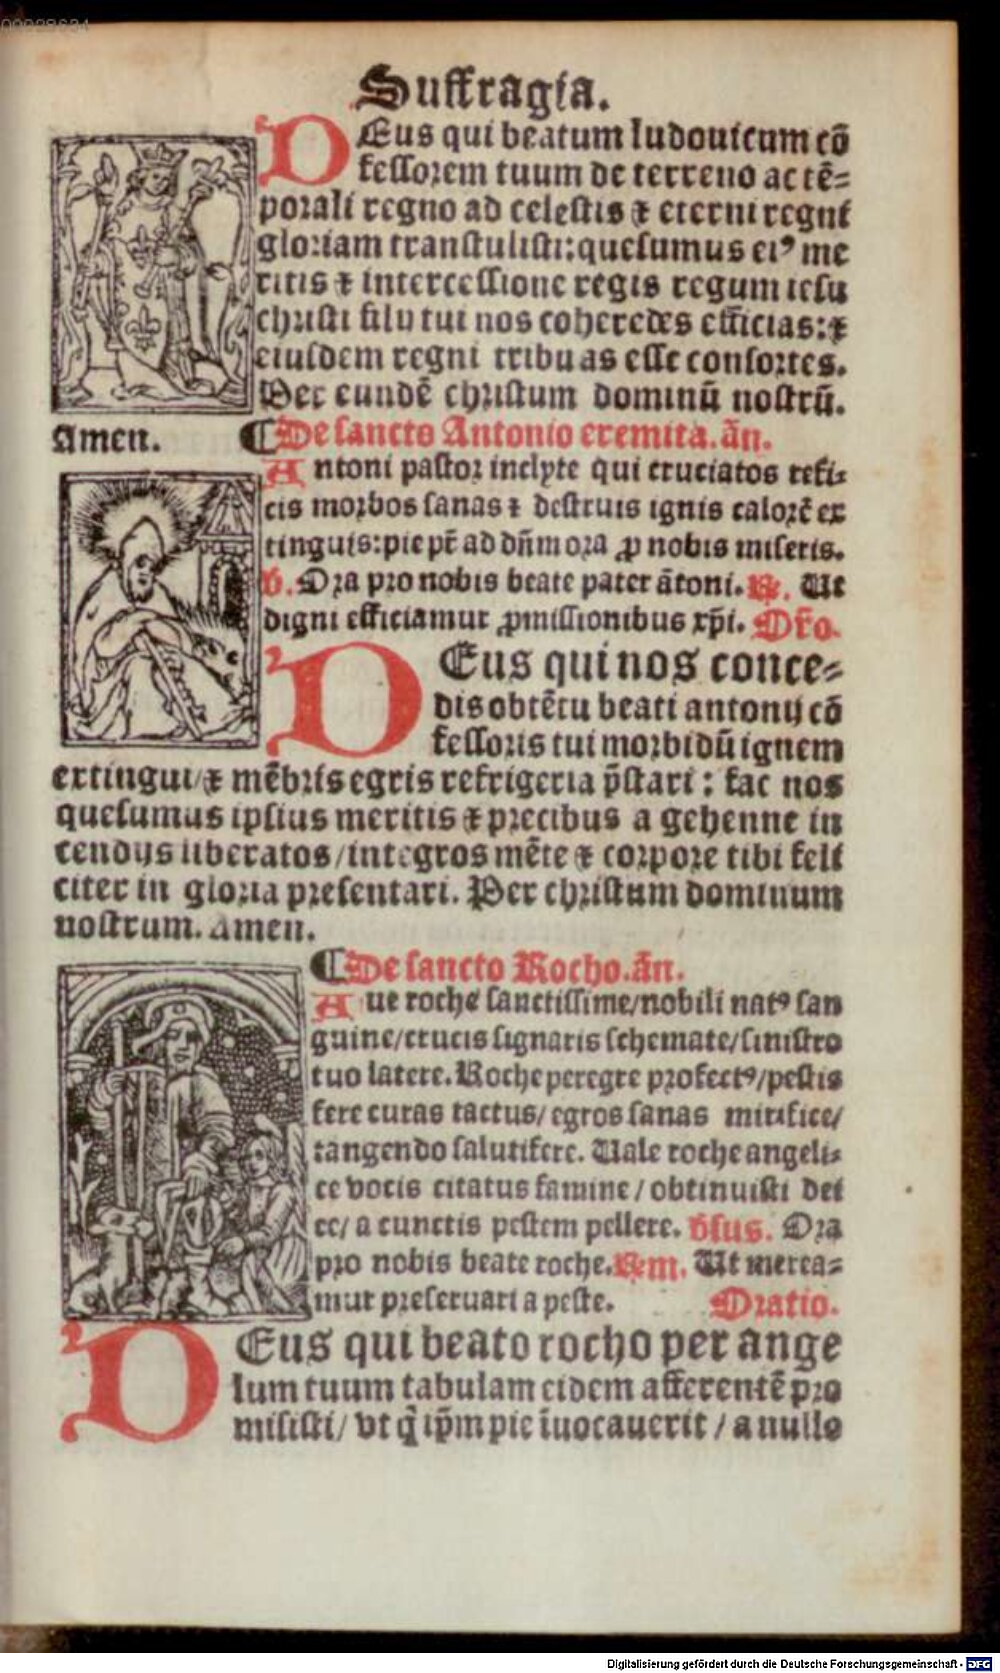 00028634
Suffragia.
DEus qui beatum ludouicum cō
fessorem tuum de terreno ac tē=
porali regno ad celestis ⁊ eterni regni
gloriam transtulisti: quesumus eiꝰ me
ritis ⁊ intercessione regis regum iesu
christi filij tui nos coheredes efficias: ⁊
eiusdem regni tribuas esse consortes.
Per eundē christum dominū nostrū.
Amen. ¶De sancto Antonio eremita. ān.
Antoni pastor inclyte qui cruciatos refi=
cis morbos sanas ⁊ destruis ignis calorē ex
tinguis: pie pr̄ ad dn̄m ora ꝓ nobis miseris.
℣. Ora pro nobis beate pater ātoni. ℟. Ut
digni efficiamur ꝓmissionibus xp̄i. Or̄o.
DEus qui nos conce=
dis obtētu beati antonij cō
fessoris tui morbidū ignem
extingui/⁊ mēbris egris refrigeria p̄stari: fac nos
quesumus ipsius meritis ⁊ precibus a gehenne in
cendijs liberatos/integros mēte ⁊ corpore tibi feli
citer in gloria presentari. Per christum dominum
nostrum. Amen.
¶De sancto Rocho. ān.
Aue roche sanctissime/nobili natꝰ san
guine/crucis signaris schemate/sinistro
tuo latere. Roche peregre profectꝰ/pestis
fere curas tactus/egros sanas mirifice/
tangendo salutifere. Uale roche angeli=
ce vocis citatus famine/obtinuisti dei
ce/a cunctis pestem pellere. ℣sus. Ora
pro nobis beate roche. ℟m. Ut merea=
mur preseruari a peste. Oratio.
DEus qui beato rocho per ange
lum tuum tabulam eidem afferentē pro
misisti/vt q̄ ip̄m pie īuocauerit/a nullo
Digitalisierung gefördert durch die Deutsche Forschungsgemeinschaft - DFG